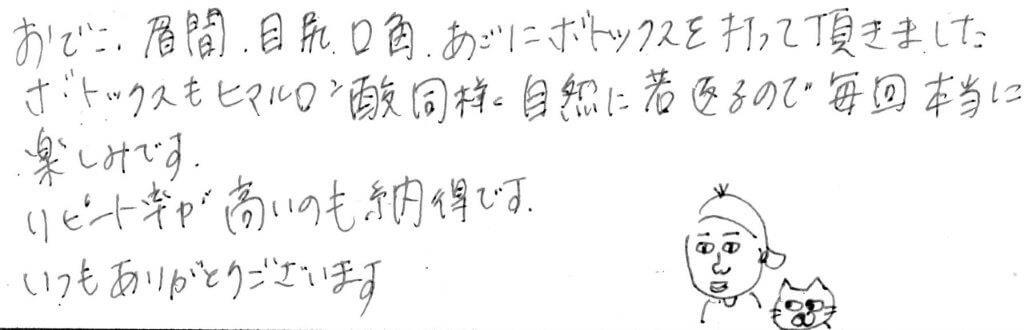 おでこ、眉間、目尻、口角、あごにボトックスを打って頂きました
ボトックスもヒアルロン酸同様、自然に若返るので毎回本当に
楽しみです。
リピート率が高いのも納得です。
いつもありがとうございます